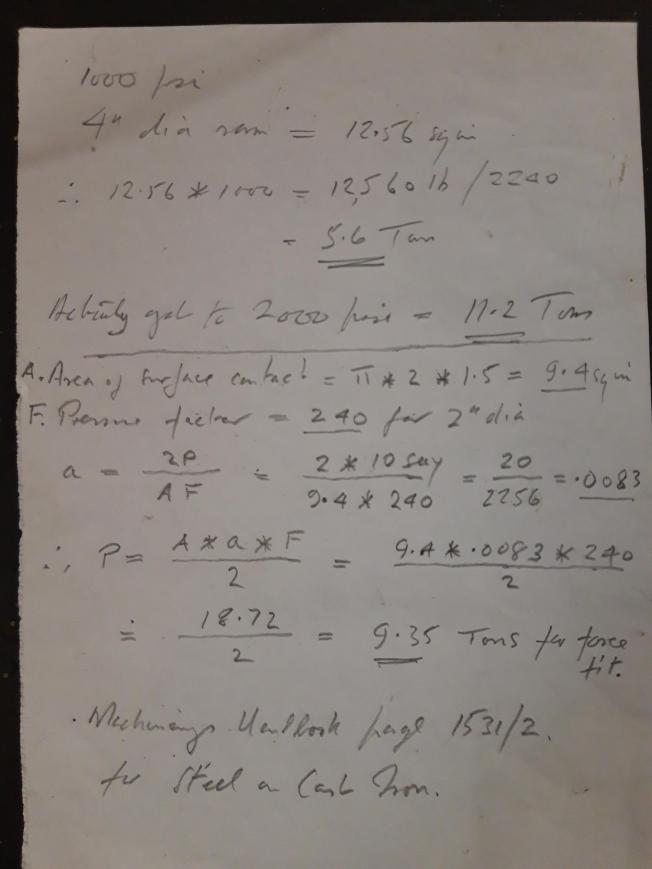 1000 psi
4" dia ram = 12.56 sq in
∴ 12.56 * 1000 = 12,560 lb / 2240
= 5.6 Ton
Actually got to 2000 psi = 11.2 Tons
A. Area of surface contact = π * 2 * 1.5 = 9.4 sq in
F. Pressure factor = 240 for 2" dia
a = 2P / AF = 2 * 10 say / 9.4 * 240 = 20 / 2256 = .0083
∴ P = A * a * F / 2 = 9.4 * .0083 * 240 / 2
= 18.72 / 2 = 9.35 Tons for force
fit.
. Machinerys Handbook page 1531/2.
for Steel on Cast Iron.